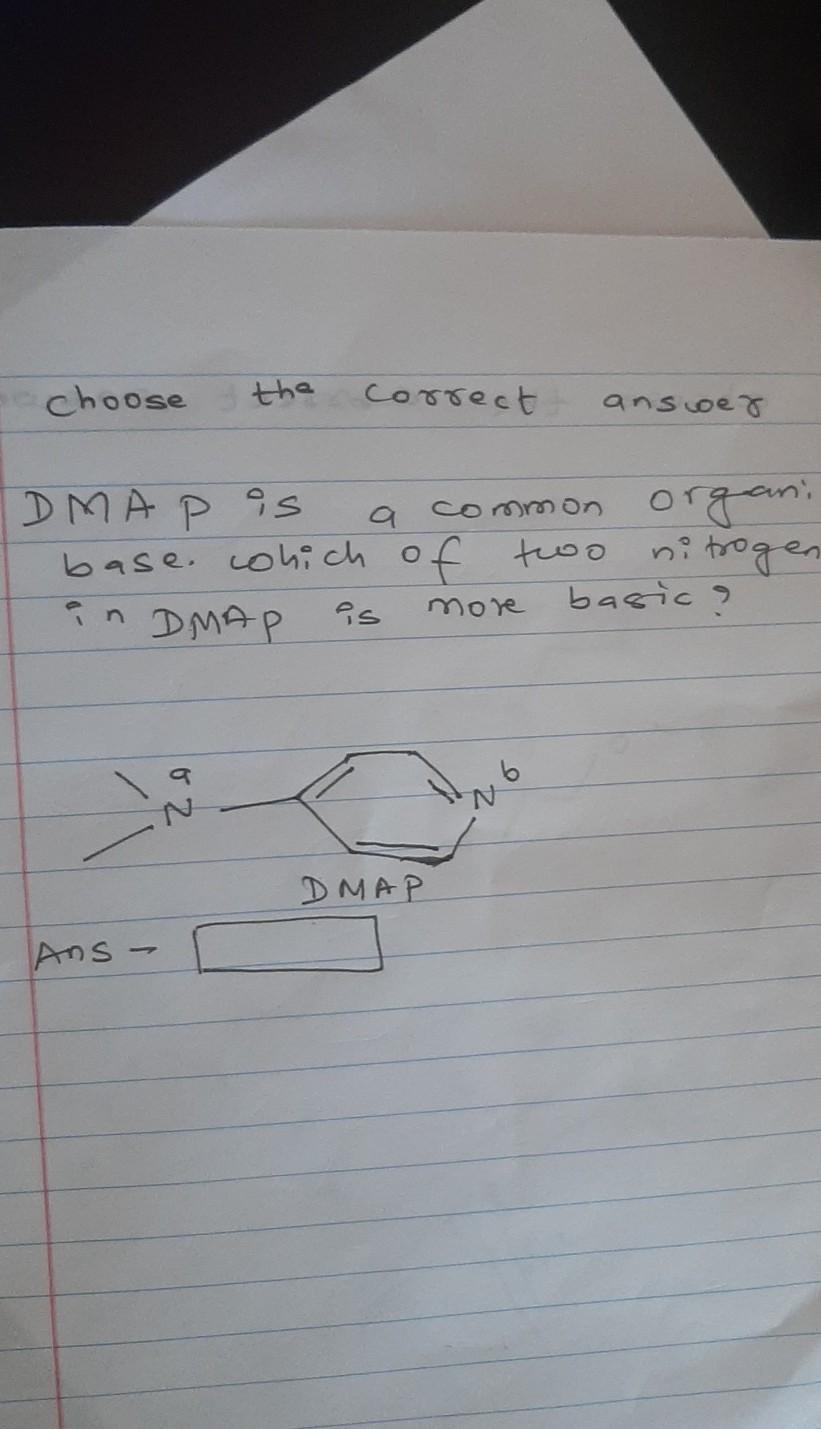 choose the correct answer
DMAP is a common organi
base. which of two nitrogen
in DMAP is more basic?
a
N
b
N
DMAP
Ans -